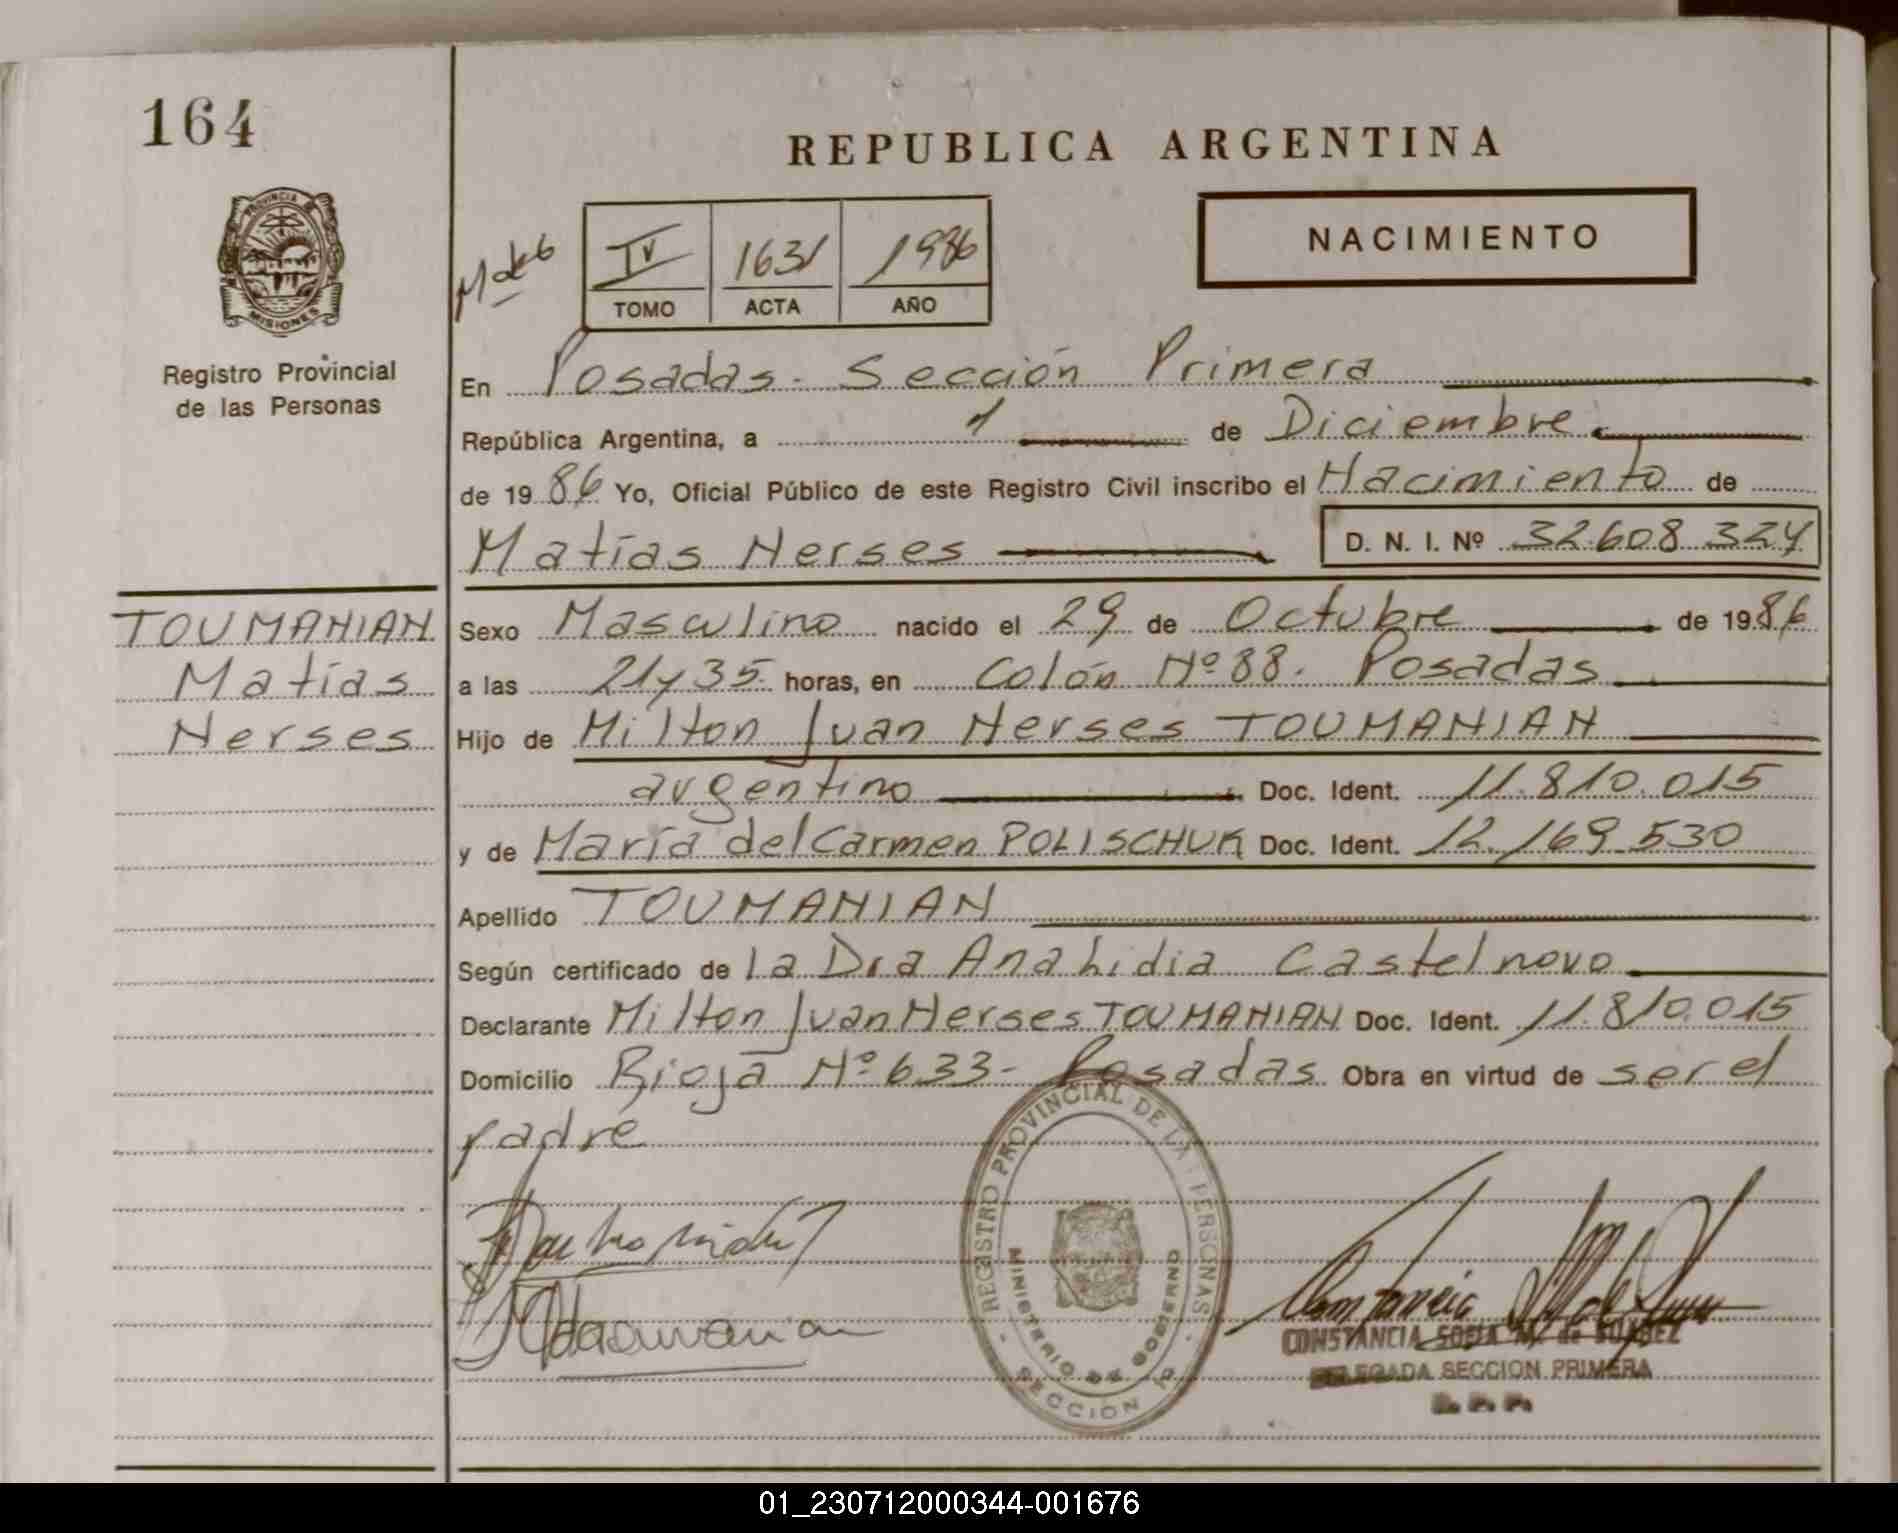 164
REPUBLICA ARGENTINA
PROVINCIA DE
MISIONES
Registro Provincial
de las Personas
IV 1631 1986
TOMO ACTA AÑO
NACIMIENTO
En Posadas. Sección Primera
República Argentina, a 1 de Diciembre
de 1986 Yo, Oficial Público de este Registro Civil inscribo el Nacimiento de
Matías Nerses D. N. I. Nº 32.608.324
TOUMANIAN
Matías
Nerses
Sexo Masculino nacido el 29 de Octubre de 1986
a las 21 y 35 horas, en Colón Nº 88. Posadas
Hijo de Milton Juan Nerses TOUMANIAN
argentino Doc. Ident. 11.810.015
y de María del Carmen POLISCHUK Doc. Ident. 12.169.530
Apellido TOUMANIAN
Según certificado de la Dra Ana Lidia Castelnovo
Declarante Milton Juan Nerses TOUMANIAN Doc. Ident. 11.810.015
Domicilio Rioja Nº 633- Posadas Obra en virtud de ser el
padre
REGISTRO PROVINCIAL DE LAS PERSONAS
MINISTERIO DE GOBIERNO
SECCION 1a
CONSTANCIA SOFIA M. de SUAREZ
DELEGADA SECCION PRIMERA
R. P. P.
01_230712000344-001676